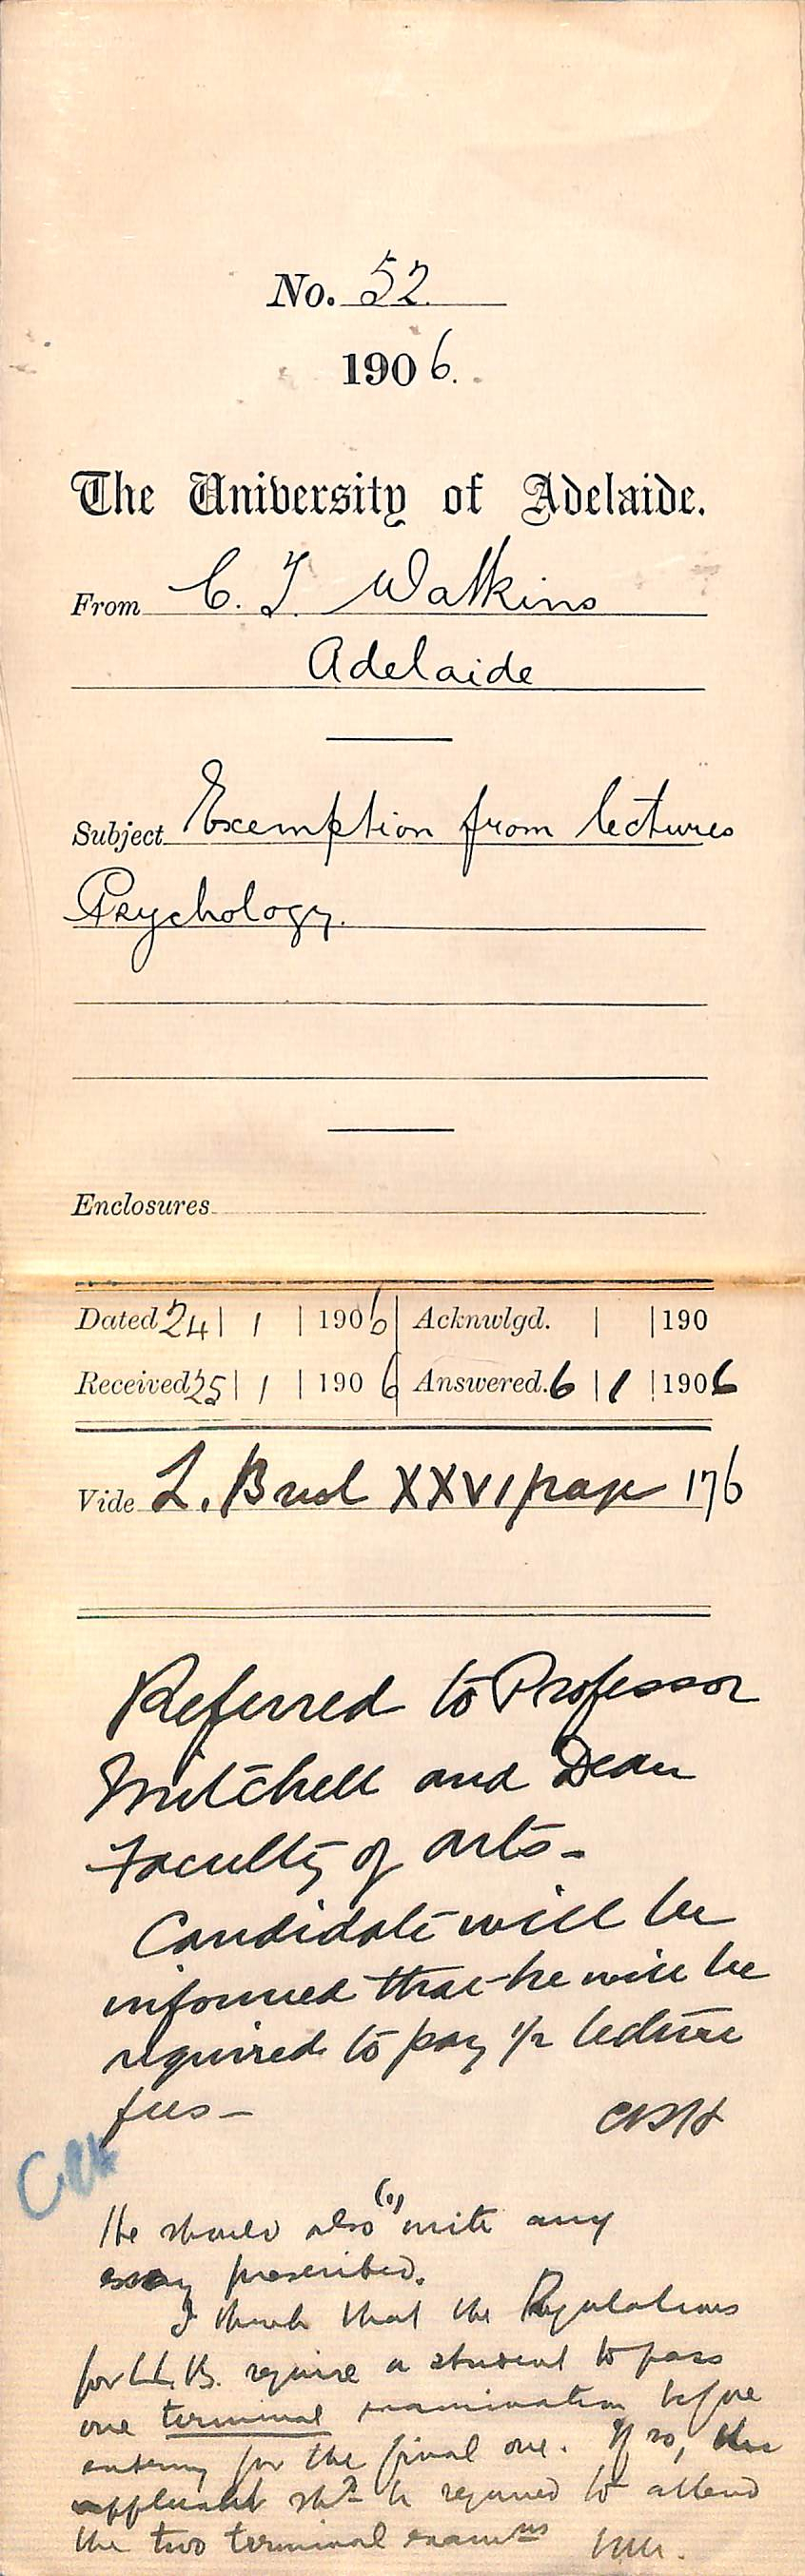 No. 52
1906.
The University of Adelaide.
From C. T. Watkins
Adelaide
Subject Exemption from lectures
Psychology.
Enclosures
Dated 24 | 1 | 1906 | Acknwlgd. | | 190
Received 25 | 1 | 1906 | Answered. 6 | 1 | 1906
Vide L. Book XXVI page 176
Referred to Professor
Mitchell and Dean
Faculty of Arts -
Candidate will be
informed that he will be
required to pay 1/2 lecture
fees -
He should also (1) write any
essay prescribed.
I think that the Regulations
for LL.B. require a student to pass
one terminal examination before
entering for the final one. If so, the
applicant shd. be required to attend
the two terminal examns